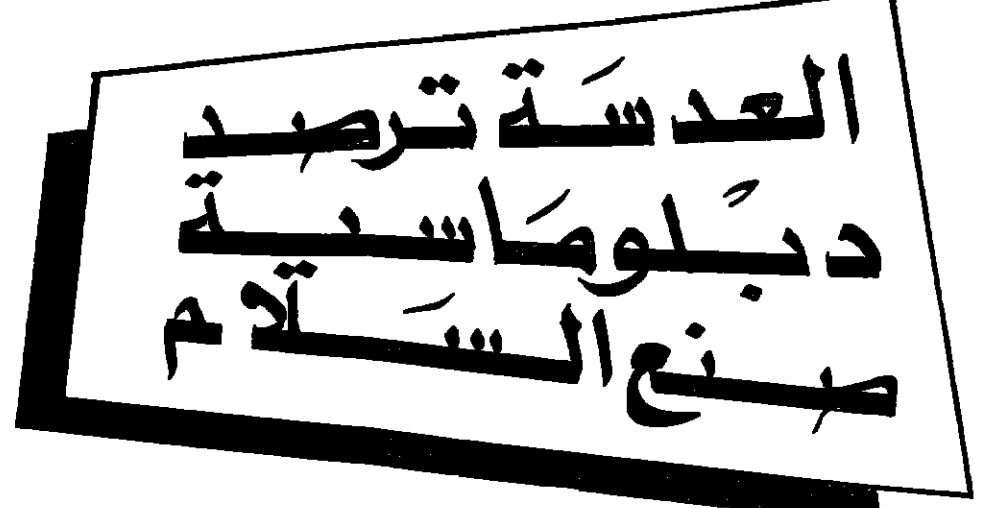 العدسَة ترصد
دبلومَاسية
صنع السَلام